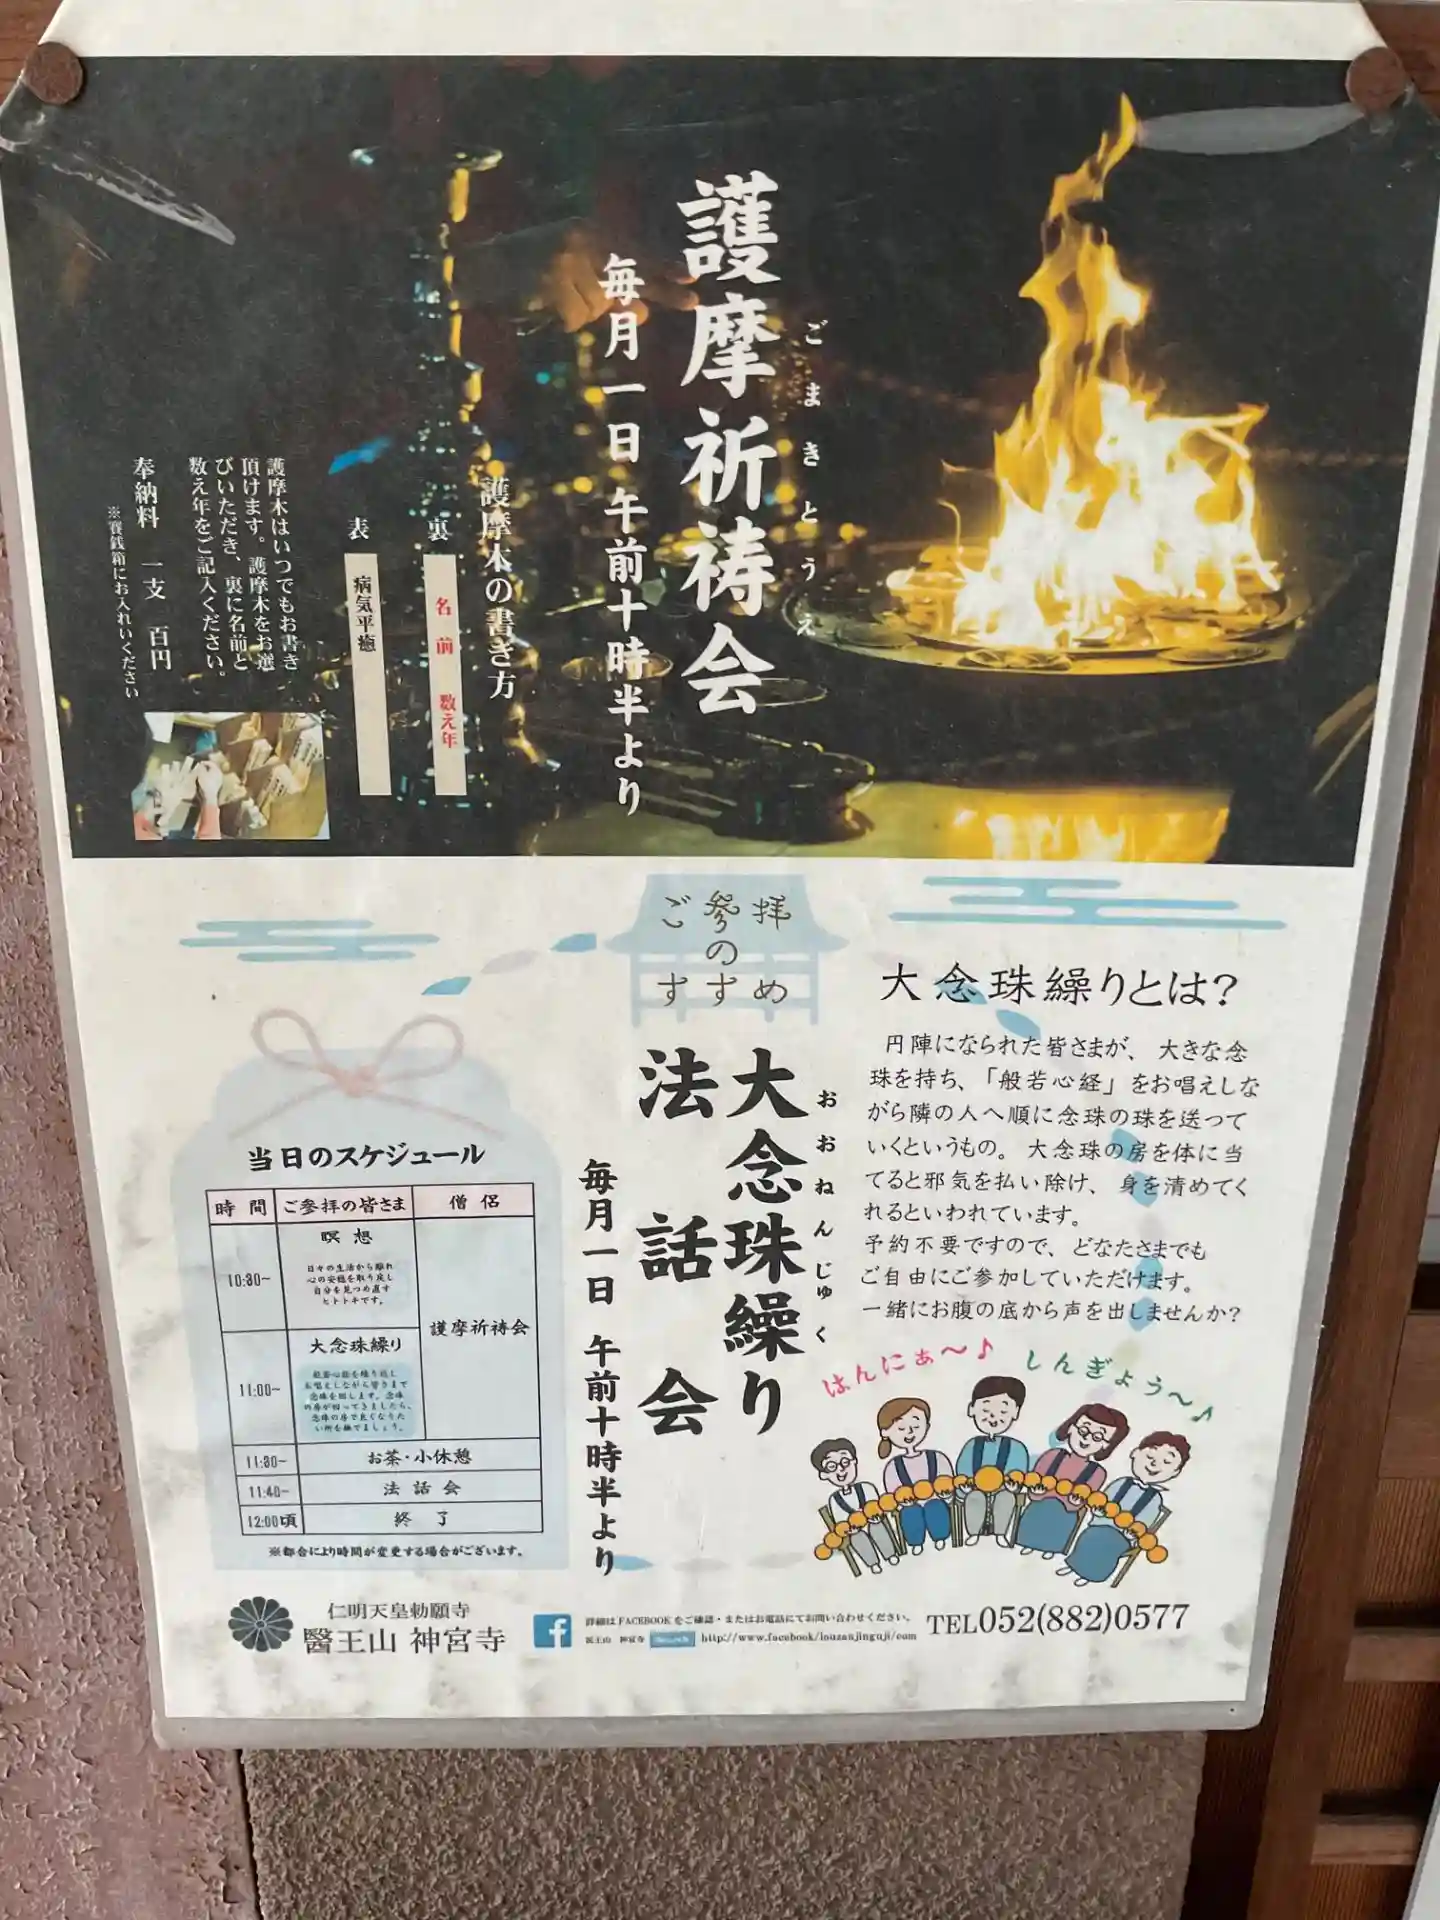 護摩祈祷会
ごまきとうえ
毎月一日 午前十時半より
護摩木の書き方
裏
名前 数え年
表
病気平癒
護摩木はいつでもお書き
頂けます。護摩木をお選
びいただき、裏に名前と
数え年をご記入ください。
奉納料 一支 百円
※賽銭箱にお入れいください
ご参拝
の
すすめ
大念珠繰り
おおねんじゅく
法話会
毎月一日 午前十時半より
大念珠繰りとは?
円陣になられた皆さまが、大きな念
珠を持ち、「般若心経」をお唱えしな
がら隣の人へ順に念珠の珠を送って
いくというもの。大念珠の房を体に当
てると邪気を払い除け、身を清めてく
れるといわれています。
予約不要ですので、どなたさまでも
ご自由にご参加していただけます。
一緒にお腹の底から声を出しませんか?
はんにぁ〜♪ しんぎょう〜♪
当日のスケジュール
時間 ご参拝の皆さま 僧侶
10:30~ 瞑想
日々の生活から離れ
心の安穏を取り戻し
自分を見つめ直す
ヒトトキです。
護摩祈祷会
11:00~ 大念珠繰り
般若心経を繰り返し
お唱えしながら皆さまで
念珠を回します。念珠
の房が回ってきましたら、
念珠の房で良くなりた
い所を撫でましょう。
11:30~ お茶・小休憩
11:40~ 法話会
12:00頃 終了
※都合により時間が変更する場合がございます。
仁明天皇勅願寺
醫王山 神宮寺
詳細はFACEBOOKをご確認・またはお電話にてお問い合わせください。
醫王山 神宮寺 Search http://www.facebook/iouzanjinguji/com
TEL052(882)0577